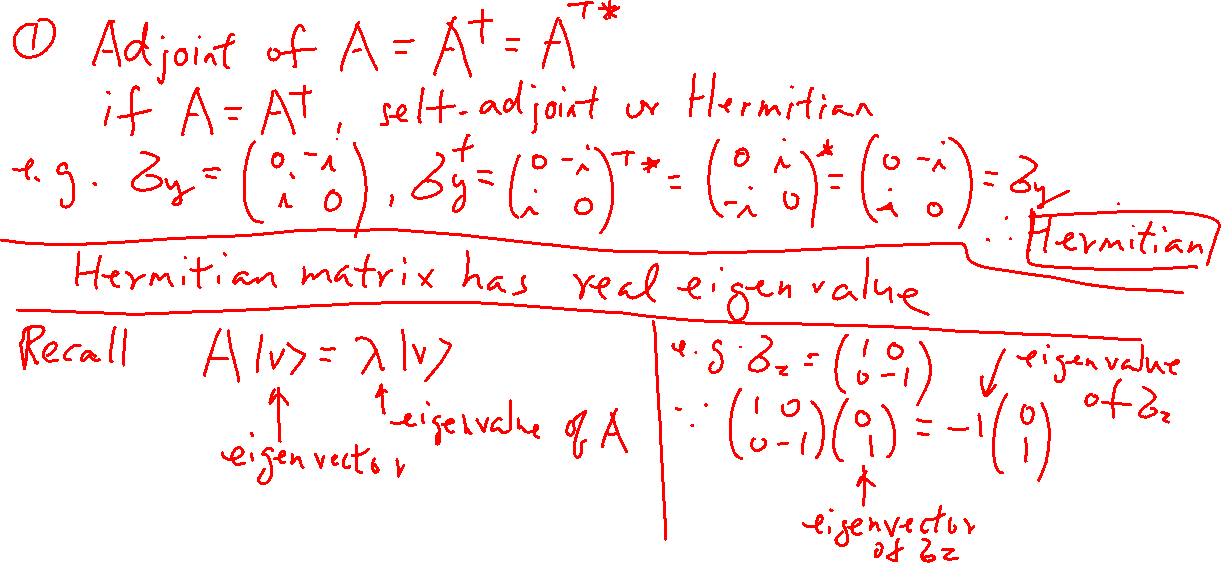 ① Adjoint of A = A† = A^T*
if A = A†, self-adjoint or Hermitian
e.g. σ_y = (0 -i; i 0), σ_y† = (0 -i; i 0)^T* = (0 i; -i 0)^* = (0 -i; i 0) = σ_y
∴ Hermitian
Hermitian matrix has real eigenvalue
Recall A|v> = λ|v>
↑ eigenvector
↑ eigenvalue of A
e.g. σ_z = (1 0; 0 -1)
↙ eigenvalue of σ_z
∵ (1 0; 0 -1)(0; 1) = -1(0; 1)
↑
eigenvector
of σ_z